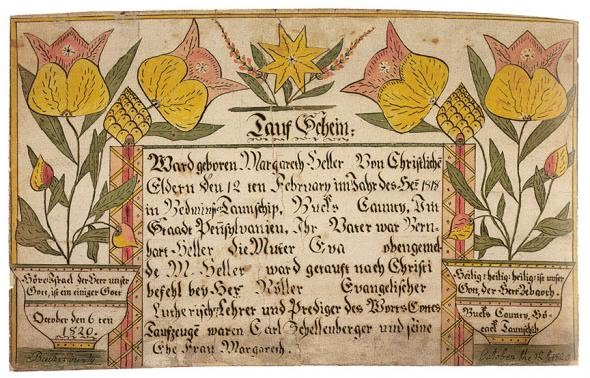 Tauf Schein:
Ward geboren Margareth Heller Von Christliche
Eldern den 12 ten February im Jahr des Herr 1818
in Bedminster Taunschip, Bucks Caunty, Im
Staadt Pensylvanien, Ihr Vater war Bern-
hart Heller die Muter Eva obengemel-
de M. Heller ward getauft nach Christi
befehl bey Herr Röller Evangelischer
Lutherisch: Lehrer und Prediger des Worts Gottes
Taufzeuge waren Carl Schellenberger und seine
Ehe Frau Margareth.
Höre Israel der Herr unser
Gott, ist ein einiger Gott
October den 6 ten
1820.
Heilig: heilig: heilig: ist unser
Gott, der Herr Zebaoth.
Bucks Caunty, Ro-
ck Taunschib
October the 12th 1820